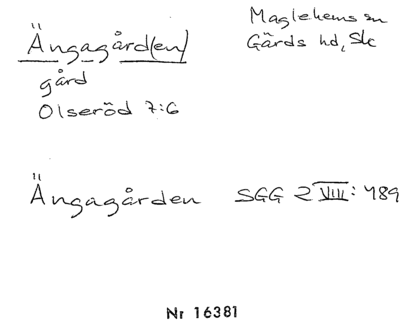 Ängagård(en)
Maglehems sn
Gärds hd, Skc
gård
Olseröd 7:6
Ängagården SGG 2 VIII: 489
Nr 16381